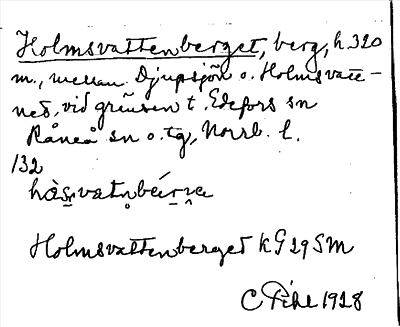 Holmsvattenberget, berg, h. 320
m., mellan Djupsjön o. Holmsvatt-
net, vid gränsen t. Edefors sn
Råneå sn o. tg, Norrb. l.
132
Holmsvattenberget KG 29 SM
C Pihl 1928